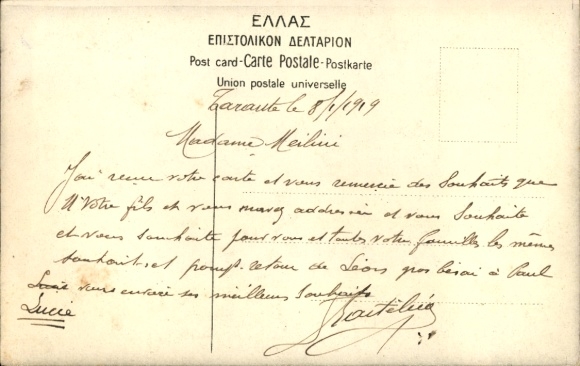 ΕΛΛΑΣ
ΕΠΙΣΤΟΛΙΚΟΝ ΔΕΛΤΑΡΙΟΝ
Post card-Carte Postale-Postkarte
Union postale universelle
Tarante le 8/1/1919
Madame Meilini
J'ai reçue votre carte et vous remercie des Souhaits que
Votre fils et vous adressée et vous Souhaite
et vous souhaite pour vous et toutes votre familles les mêmes
souhaits et retour de gros à Paul
vous envoie ses meilleurs Souhaits
Lucie